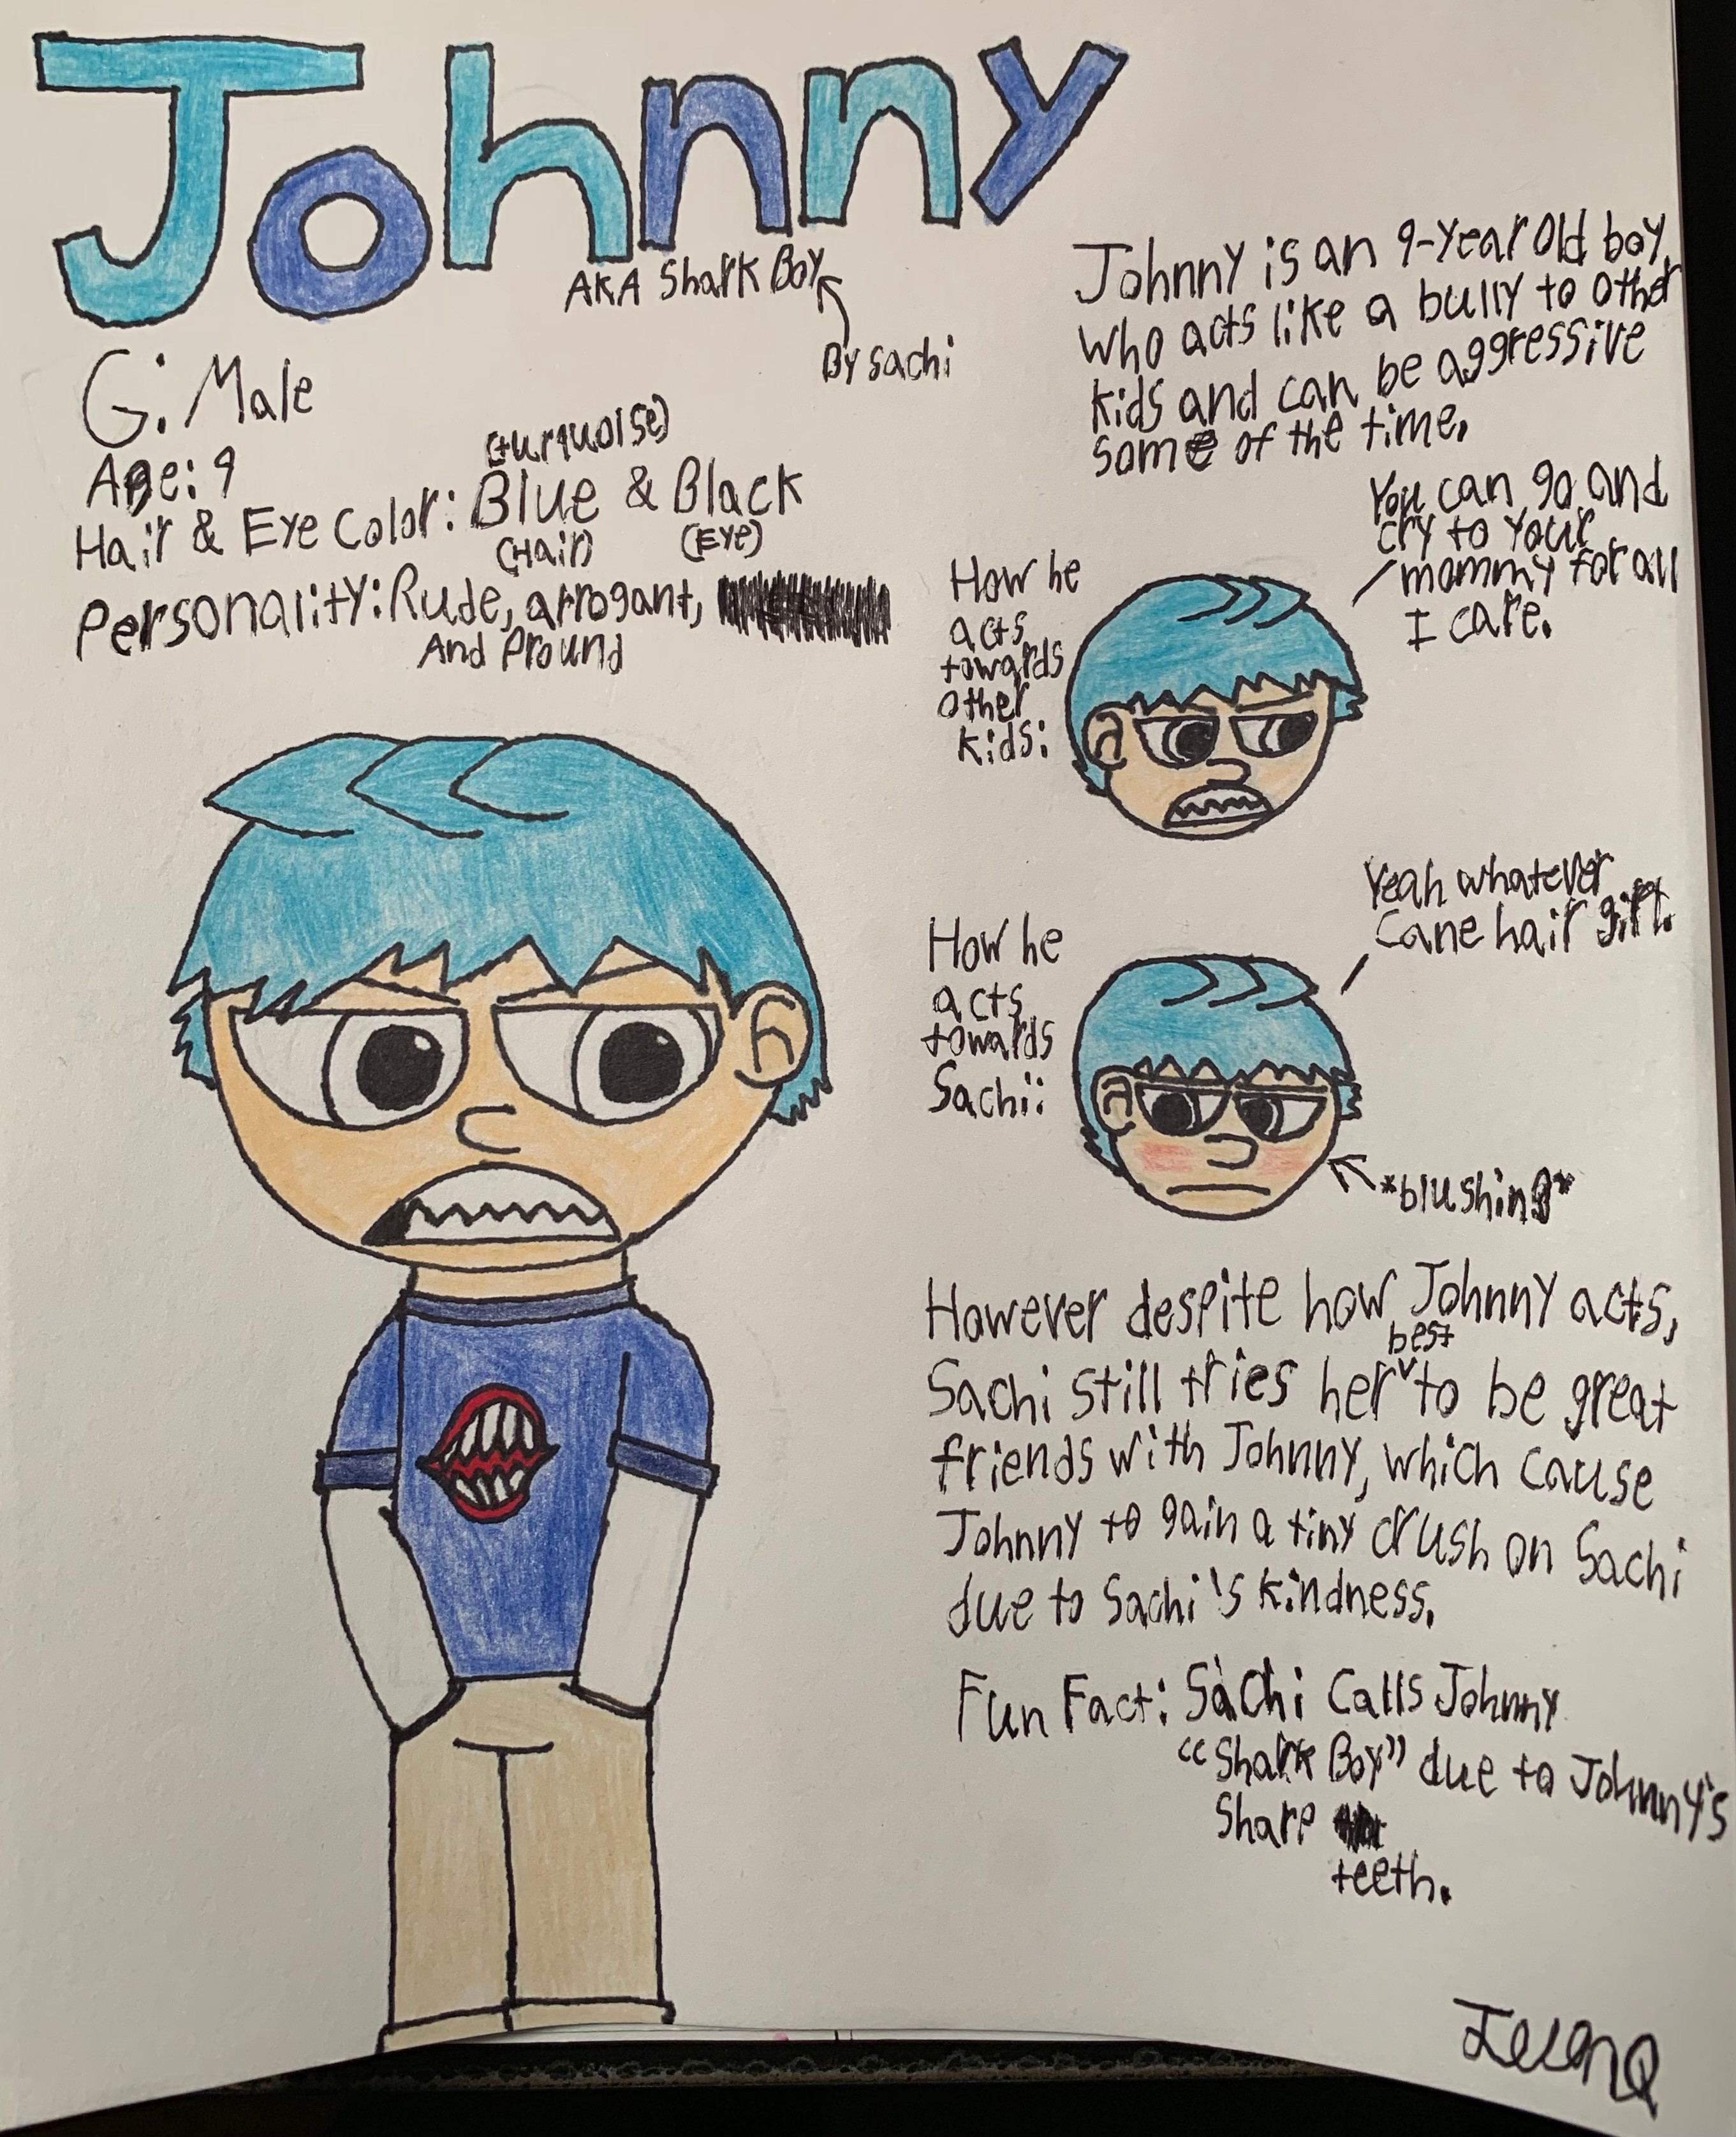 Johnny
AKA Shark Boy
By Sachi
G: Male
Age: 9
(turquoise)
Hair & Eye Color: Blue & Black
(Hair) (Eye)
Personality: Rude, arrogant,
And Pround
Johnny is an 9-year old boy,
who acts like a bully to other
kids and can be aggressive
some of the time.
You can go and
cry to your
mommy for all
I care.
How he
acts
towards
other
kids:
Yeah whatever
Cane hair girl.
How he
acts
towards
Sachi:
*blushing*
However despite how Johnny acts,
best
Sachi still tries her to be great
friends with Johnny, which cause
Johnny to gain a tiny crush on Sachi
due to Sachi's kindness.
Fun Fact: Sachi Calls Johnny
"Shark Boy" due to Johnny's
Sharp
teeth.